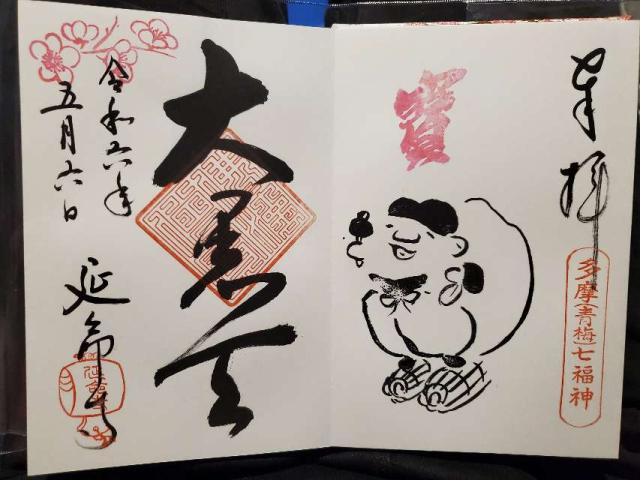 奉拝
多摩(青梅)七福神
寳
大黒天
令和六年
五月六日
延命寺